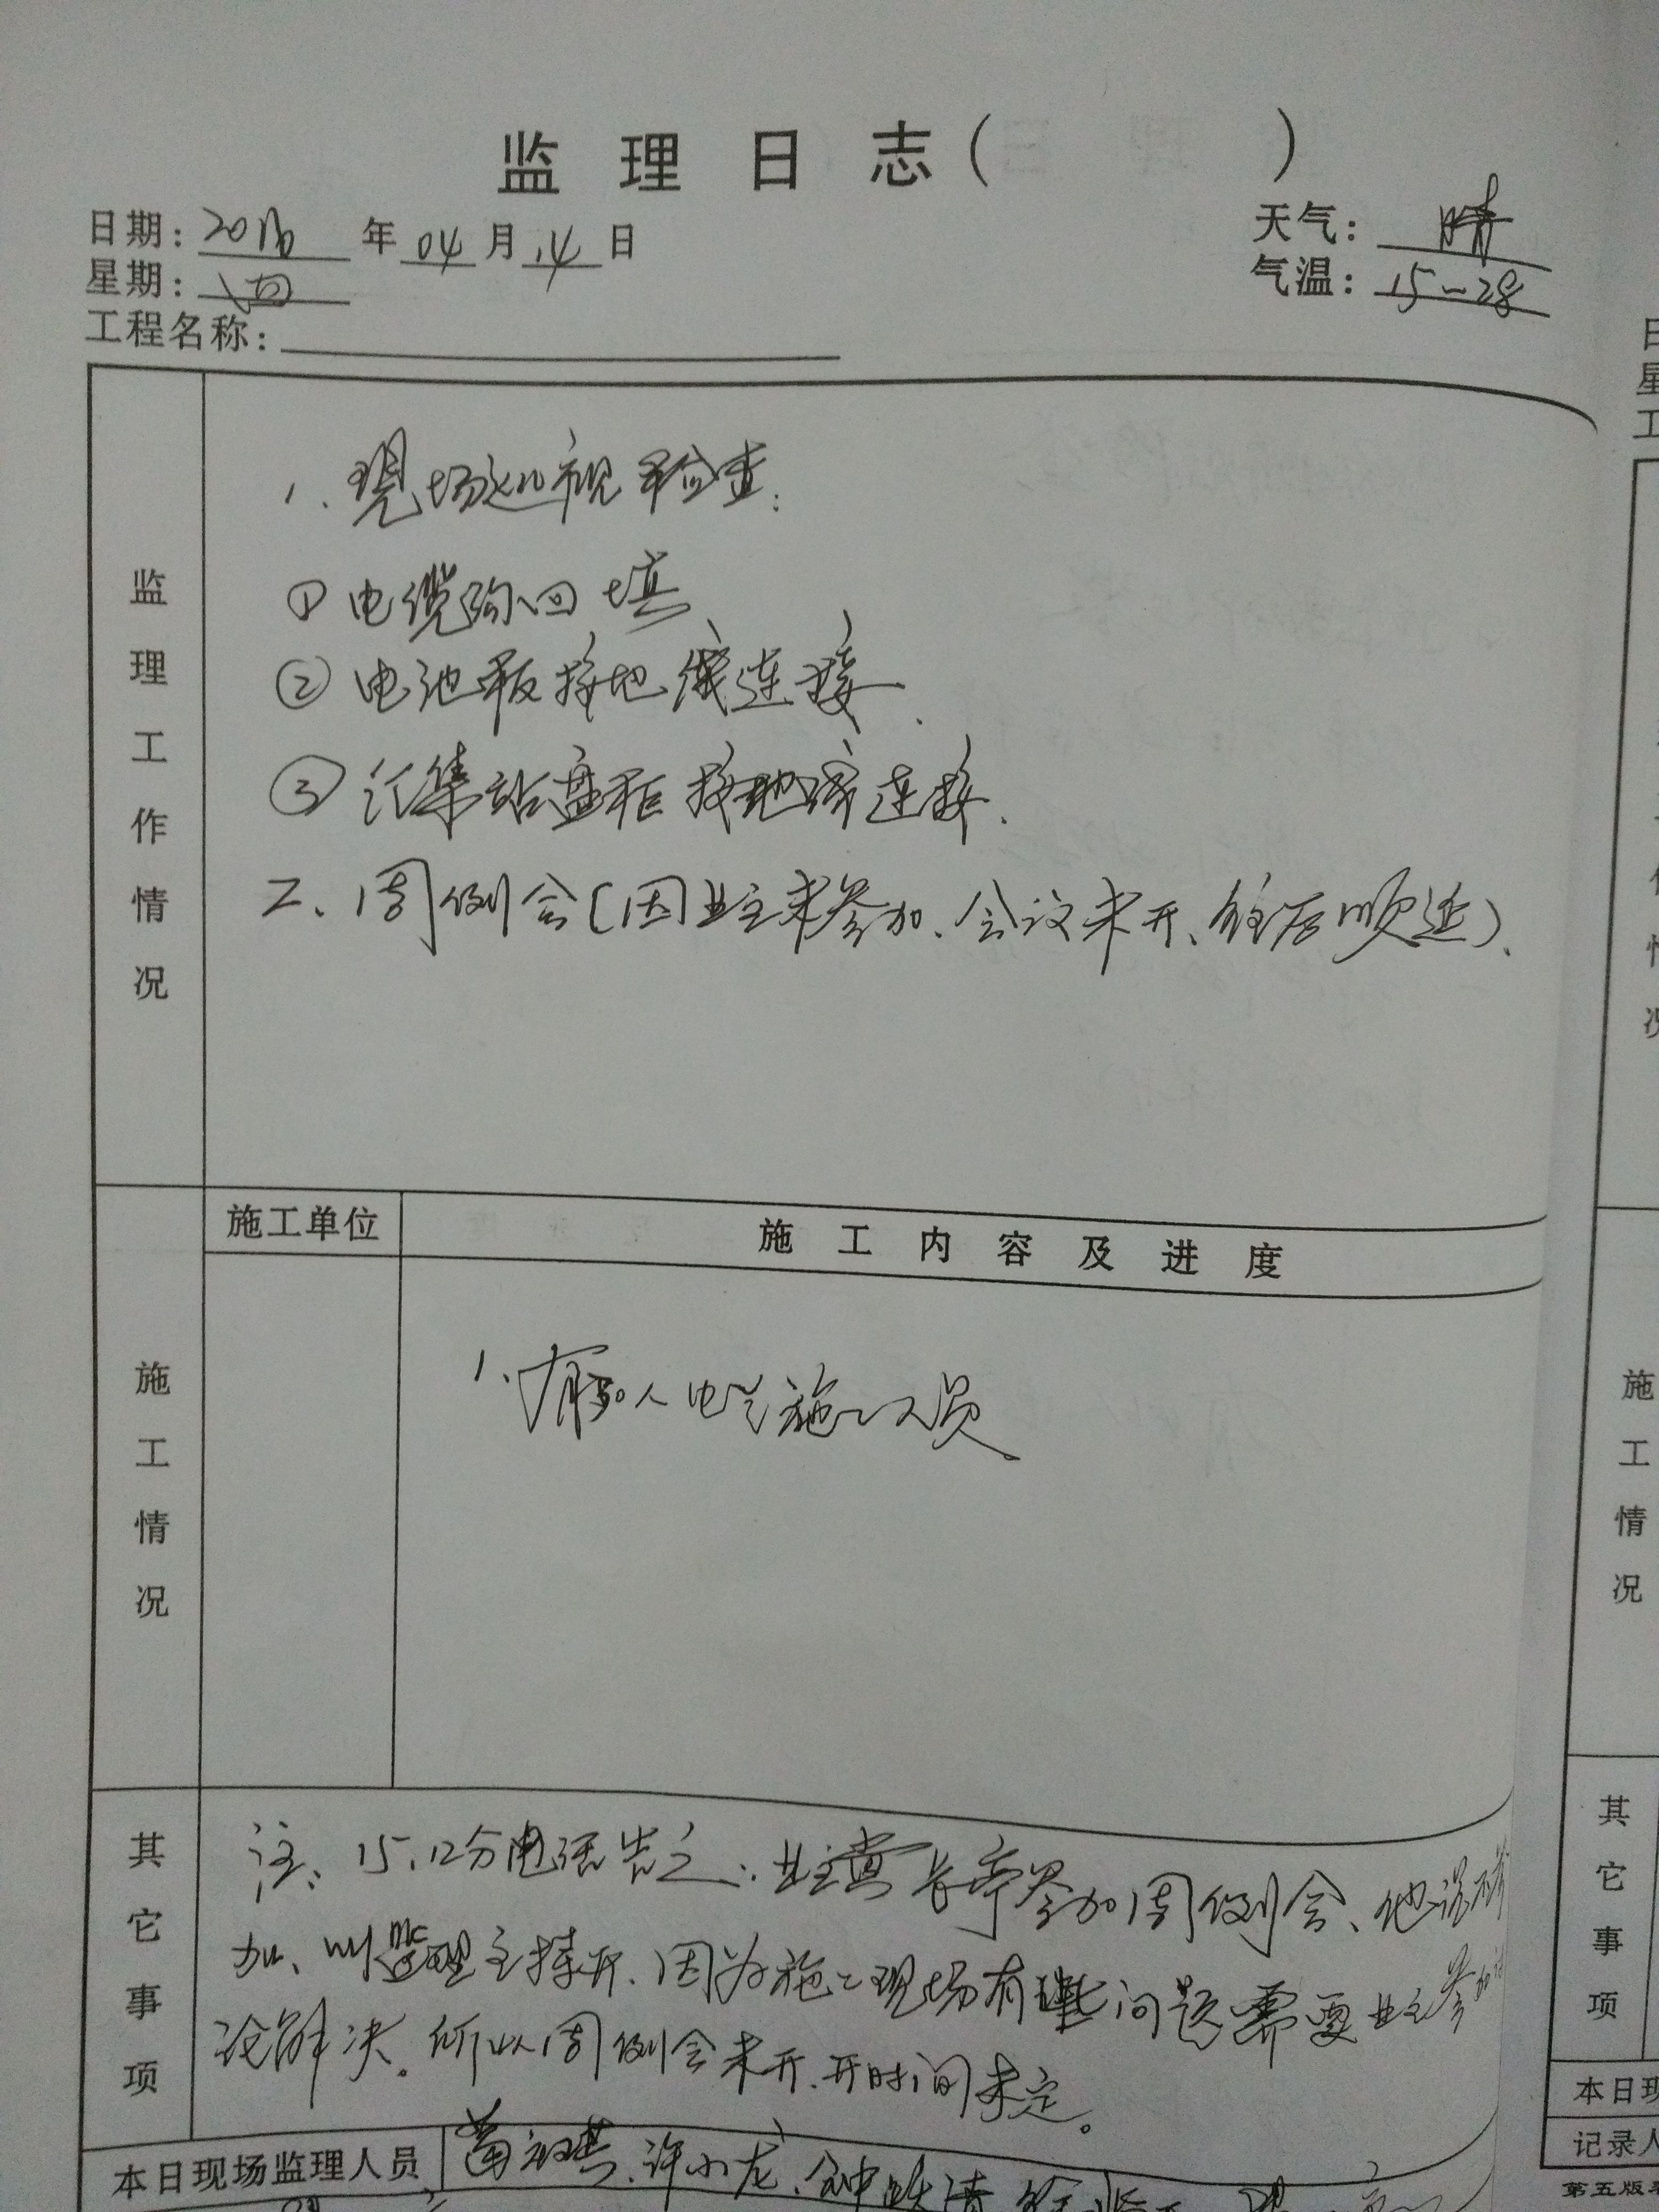 监理日志（ ）
日期：2016年04月14日 天气：晴
星期：四 气温：15—28
工程名称：
监理工作情况
1、现场巡视检查：
① 电缆沟回填、
② 电池板接地线连接、
③ 汇集站盘柜接地线连接、
2、周例会（因业主未参加、会议未开、往后顺延）、
施工单位 施工内容及进度
施工情况
1、有 人电气施工人员
其它事项
注：15.12分电话告之：业主 参加周例会、他说不参
加、叫监理主持开、因为施工现场有些问题需要业主参加讨
论解决。所以周例会未开、开时间未定。
本日现场监理人员 许小龙、
日
星
工
况
施工情况
其它事项
本日现
记录人
第五版表